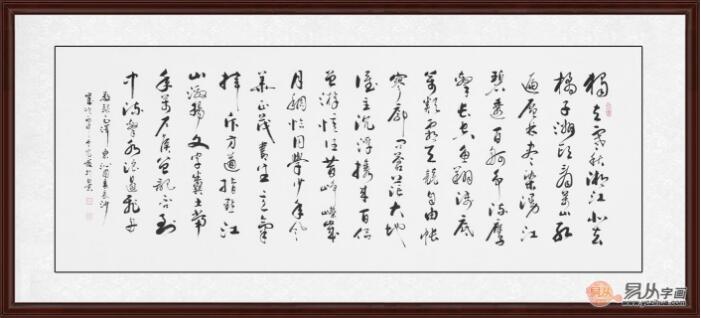 獨立寒秋湘江北去
橘子洲頭看萬山紅
遍層林盡染漫江
碧透百舸爭流鷹
擊長空魚翔淺底
萬類霜天競自由悵
寥廓問蒼茫大地
誰主沉浮攜來百侶
曾游憶往昔崢嶸歲
月稠恰同學少年風
華正茂書生意氣
揮斥方遒指點江
山激揚文字糞土當
年萬戶侯曾記否到
中流擊水浪遏飛舟
毛澤東沁園春長沙
易从
易从字画
www.yczihua.com